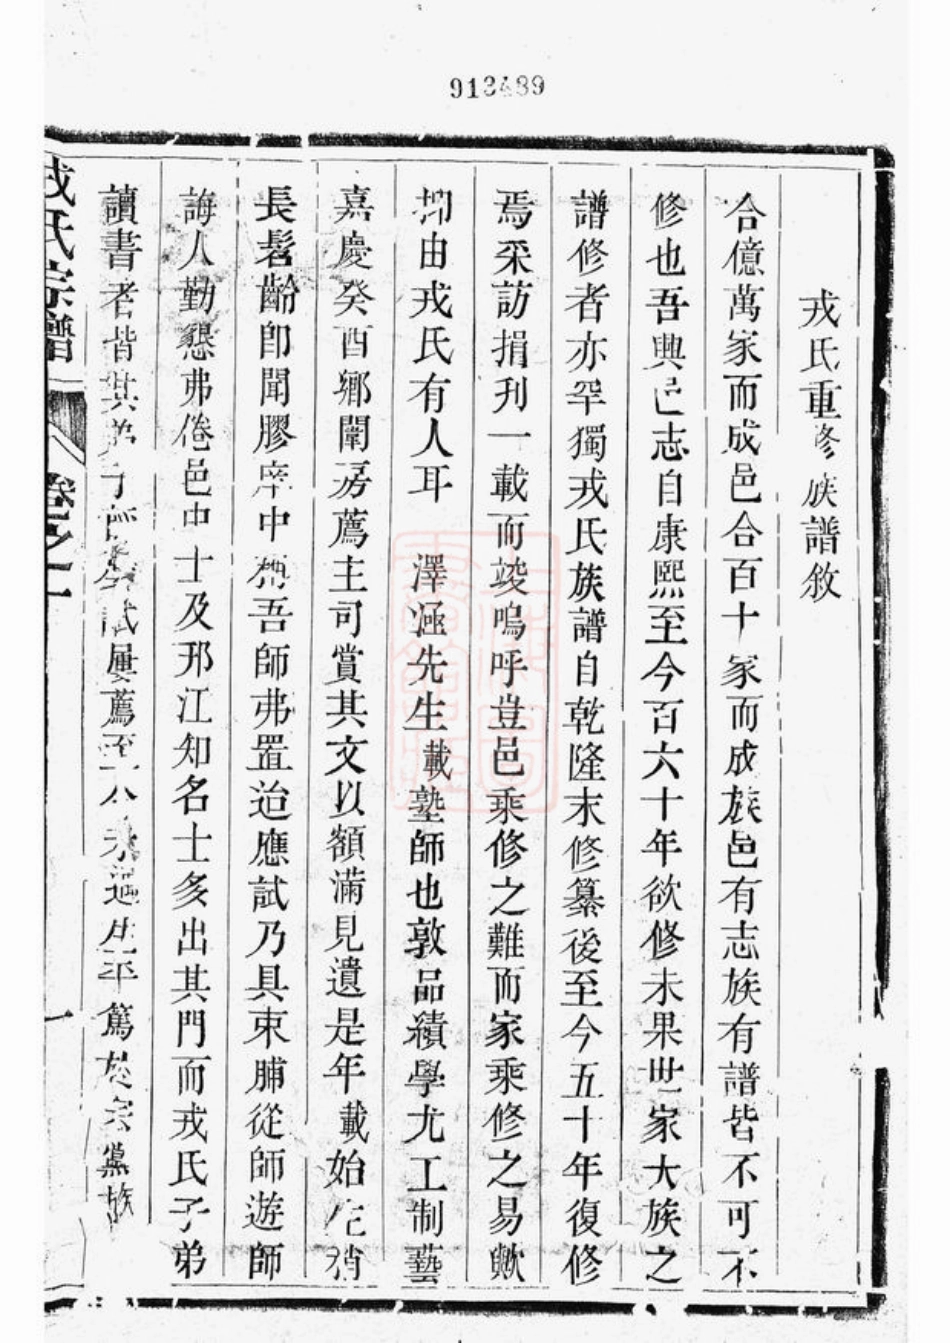 913489
戎氏重修族譜敘
合億萬家而成邑合百十家而成族邑有志族有譜皆不可不
修也吾興邑志自康熙至今百六十年欲修未果世家大族之
譜修者亦罕獨戎氏族譜自乾隆末修纂後至今五十年復修
焉采訪捐刊一載而竣嗚呼豈邑乘修之難而家乘修之易歟
抑由戎氏有人耳 澤洍先生載塾師也敦品績學尤工制藝
嘉慶癸酉鄉闈房薦主司賞其文以額滿見遺是年載始 稍
長髫齡卽聞膠庠中 吾師弗置迨應試乃具束脯從師遊師
誨人勤懇弗倦邑中士及邗江知名士多出其門而戎氏子弟
讀書者皆其弟子 試屢薦至 生平篤於宗黨族
戎氏宗譜 卷之一 一